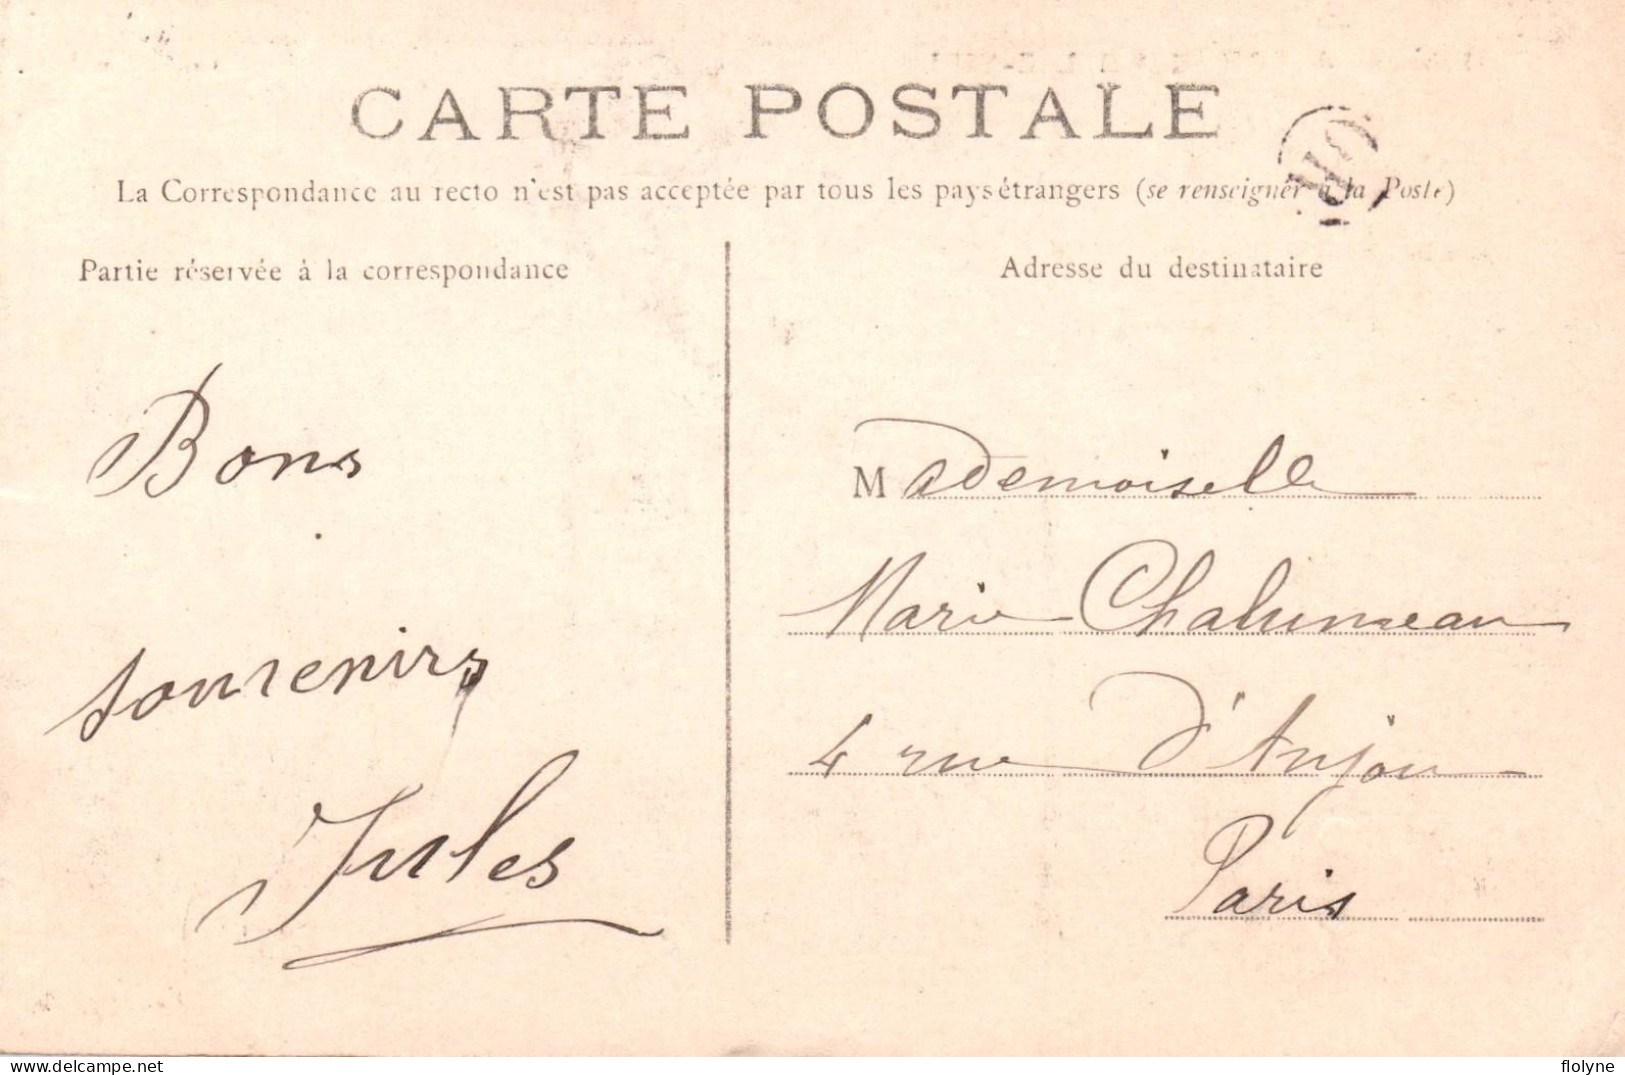 CARTE POSTALE
La Correspondance au recto n'est pas acceptée par tous les pays étrangers (se renseigner à la Poste)
Partie réservée à la correspondance
Bons
souvenirs
Jules
Adresse du destinataire
Mademoiselle
Marie Chalumeau
4 rue d'Anjou
Paris
https://www.delcampe.net
flolyne